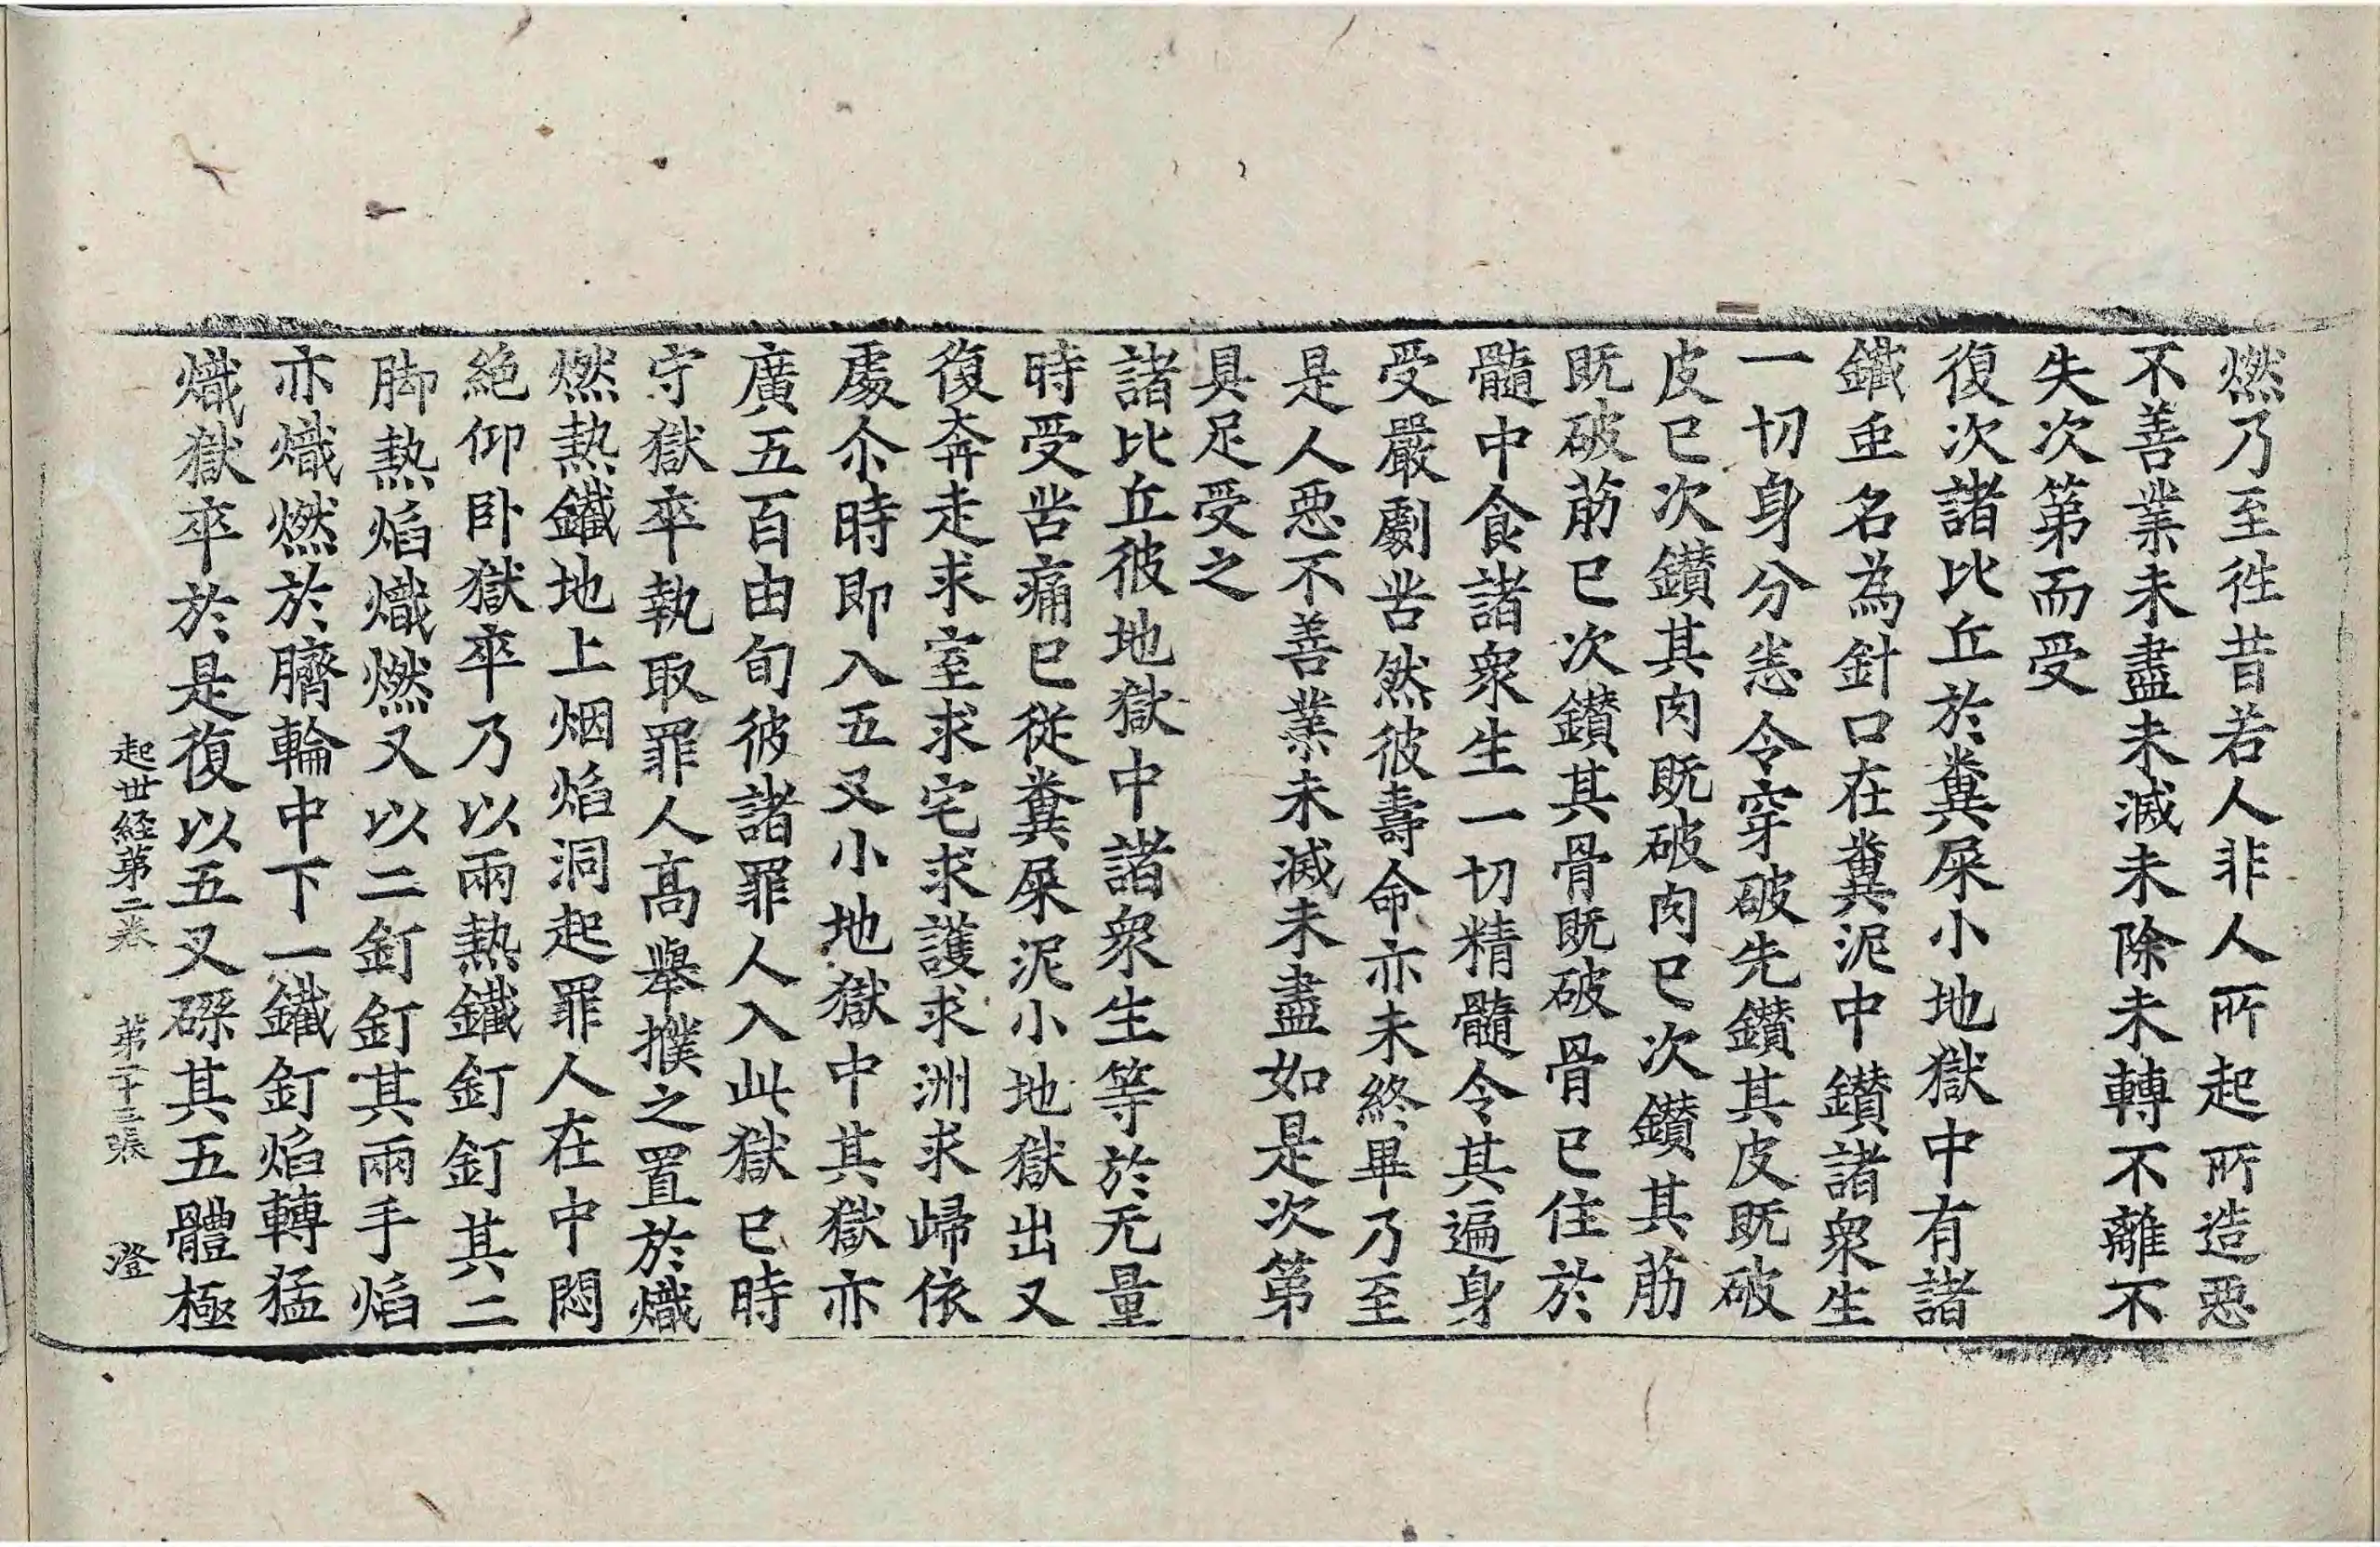 燃乃至徃昔若人非人所起所造惡
不善業未盡未滅未除未轉不離不
失次第而受
復次諸比丘於糞屎小地獄中有諸
鐵䖝名為針口在糞泥中鑚諸衆生
一切身分恙令穿破先鑚其皮旣破
皮已次鑚其肉旣破肉已次鑚其筋
旣破筋已次鑚其骨旣破骨已住於
髓中食諸衆生一切精髓令其遍身
受嚴劇苦然彼壽命亦未終畢乃至
是人惡不善業未滅未盡如是次第
具足受之
諸比丘彼地獄中諸衆生等於无量
時受苦痛已從糞屎泥小地獄出又
復奔走求室求宅求護求洲求歸依
處尒時即入五叉小地獄中其獄亦
廣五百由旬彼諸罪人入此獄已時
守獄卒執取罪人高舉撲之置於熾
燃熱鐵地上烟焰洞起罪人在中悶
絶仰卧獄卒乃以兩熱鐵釘釘其二
脚熱焰熾燃又以二釘釘其兩手焰
亦熾燃於臍輪中下一鐵釘焰轉猛
熾獄卒於是復以五叉磔其五體極
起世経第二卷 第二十三張 澄